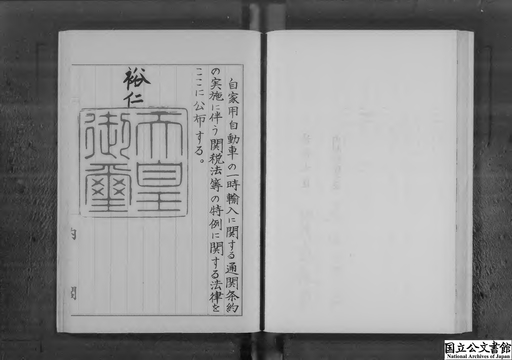 自家用自動車の一時輸入に関する通関条約
の実施に伴う関税法等の特例に関する法律を
ここに公布する。
裕仁
天皇
御璽
内閣
国立公文書館
National Archives of Japan